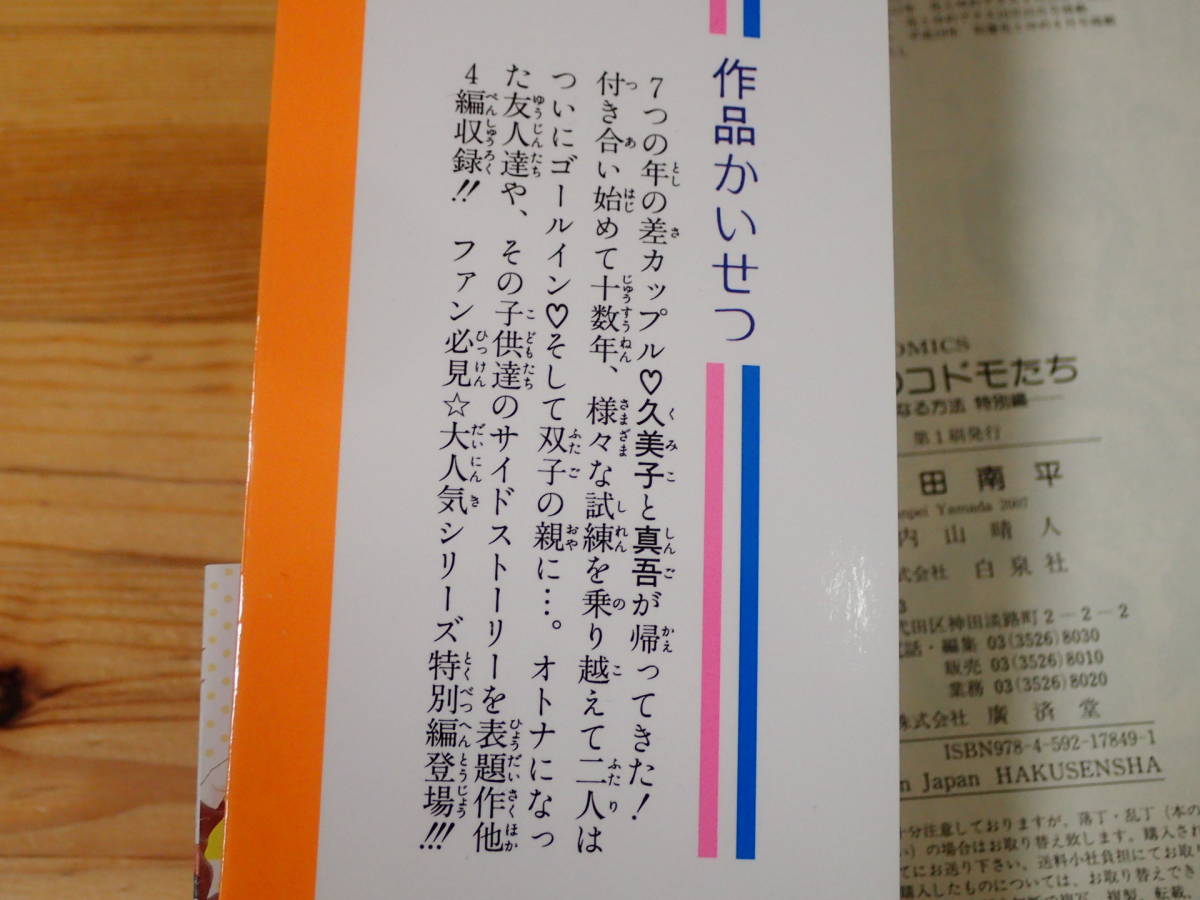 作品かいせつ
7つの年の差カップル♡久美子と真吾が帰ってきた!
付き合い始めて十数年、様々な試練を乗り越えて二人は
ついにゴールイン♡そして双子の親に…。オトナになっ
た友人達や、その子供達のサイドストーリーを表題作他
4編収録!! ファン必見☆大人気シリーズ特別編登場!!!
OMICS
コドモたち
なる方法 特別編
第1刷発行
田南平
Yamada 2007
内山晴人
白泉社
代田区神田淡路町2-2-2
電話・編集 03(3526)8030
販売 03(3526)8010
業務 03(3526)8020
株式会社 廣済堂
ISBN978-4-592-17849-1
in Japan HAKUSENSHA
十分注意しておりますが、落丁・乱丁(本の
の場合はお取り替え致します。購入され
にお送り下さい。送料小社負担にてお取り
購入したものについては、お取り替えでき